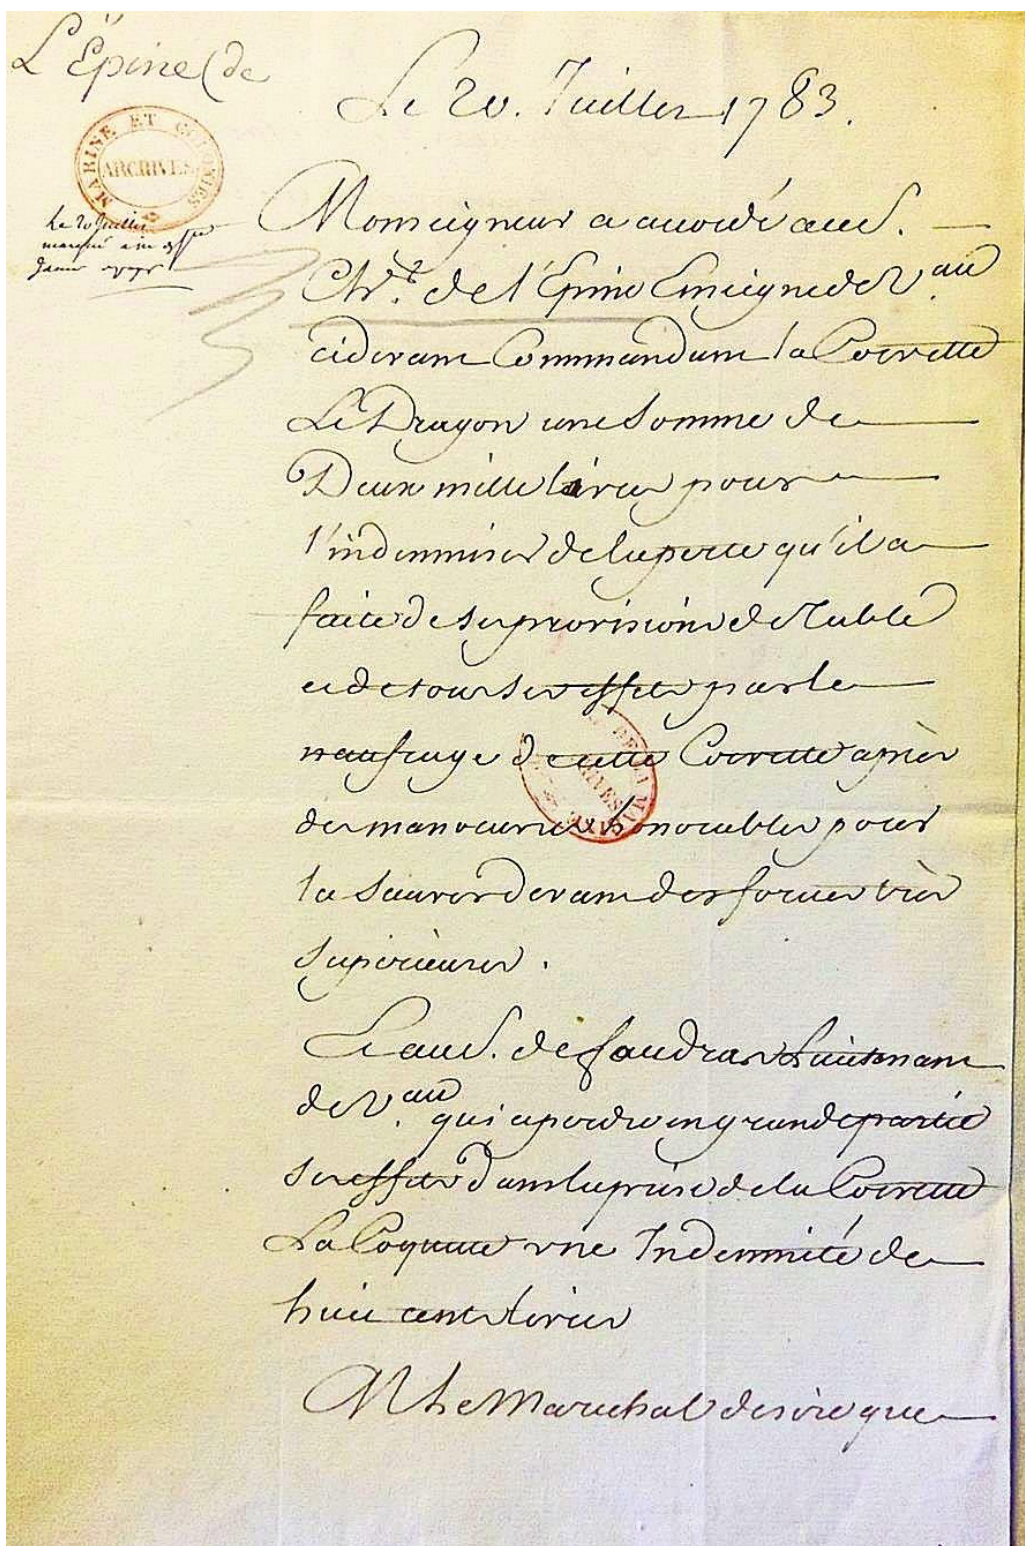 L'Épine (de
Le 20. Juillet 1783.
MARINE ET COLONIES
ARCHIVES
Le 20 Juillet
marqué a
Monseigneur a accordé au S.
Ch.er de l'Épine Enseigne de V.au
cidevant Commandant la Corvette
Le Dragon une Somme de
Deux mille livres pour
l'indemniser de la perte qu'il a
faite de ses provisions de Table
et de tous ses effets par le
naufrage de cette Corvette après
des manoeuvres honorables pour
la Sauver devant des forces très
Supérieures.
Et au S. de Lieutenant
de V.au qui a perdu en grande partie
ses effets dans la prise de la Corvette
La Coquette une Indemnité de
huit cent livres
M. Le Maréchal desire que